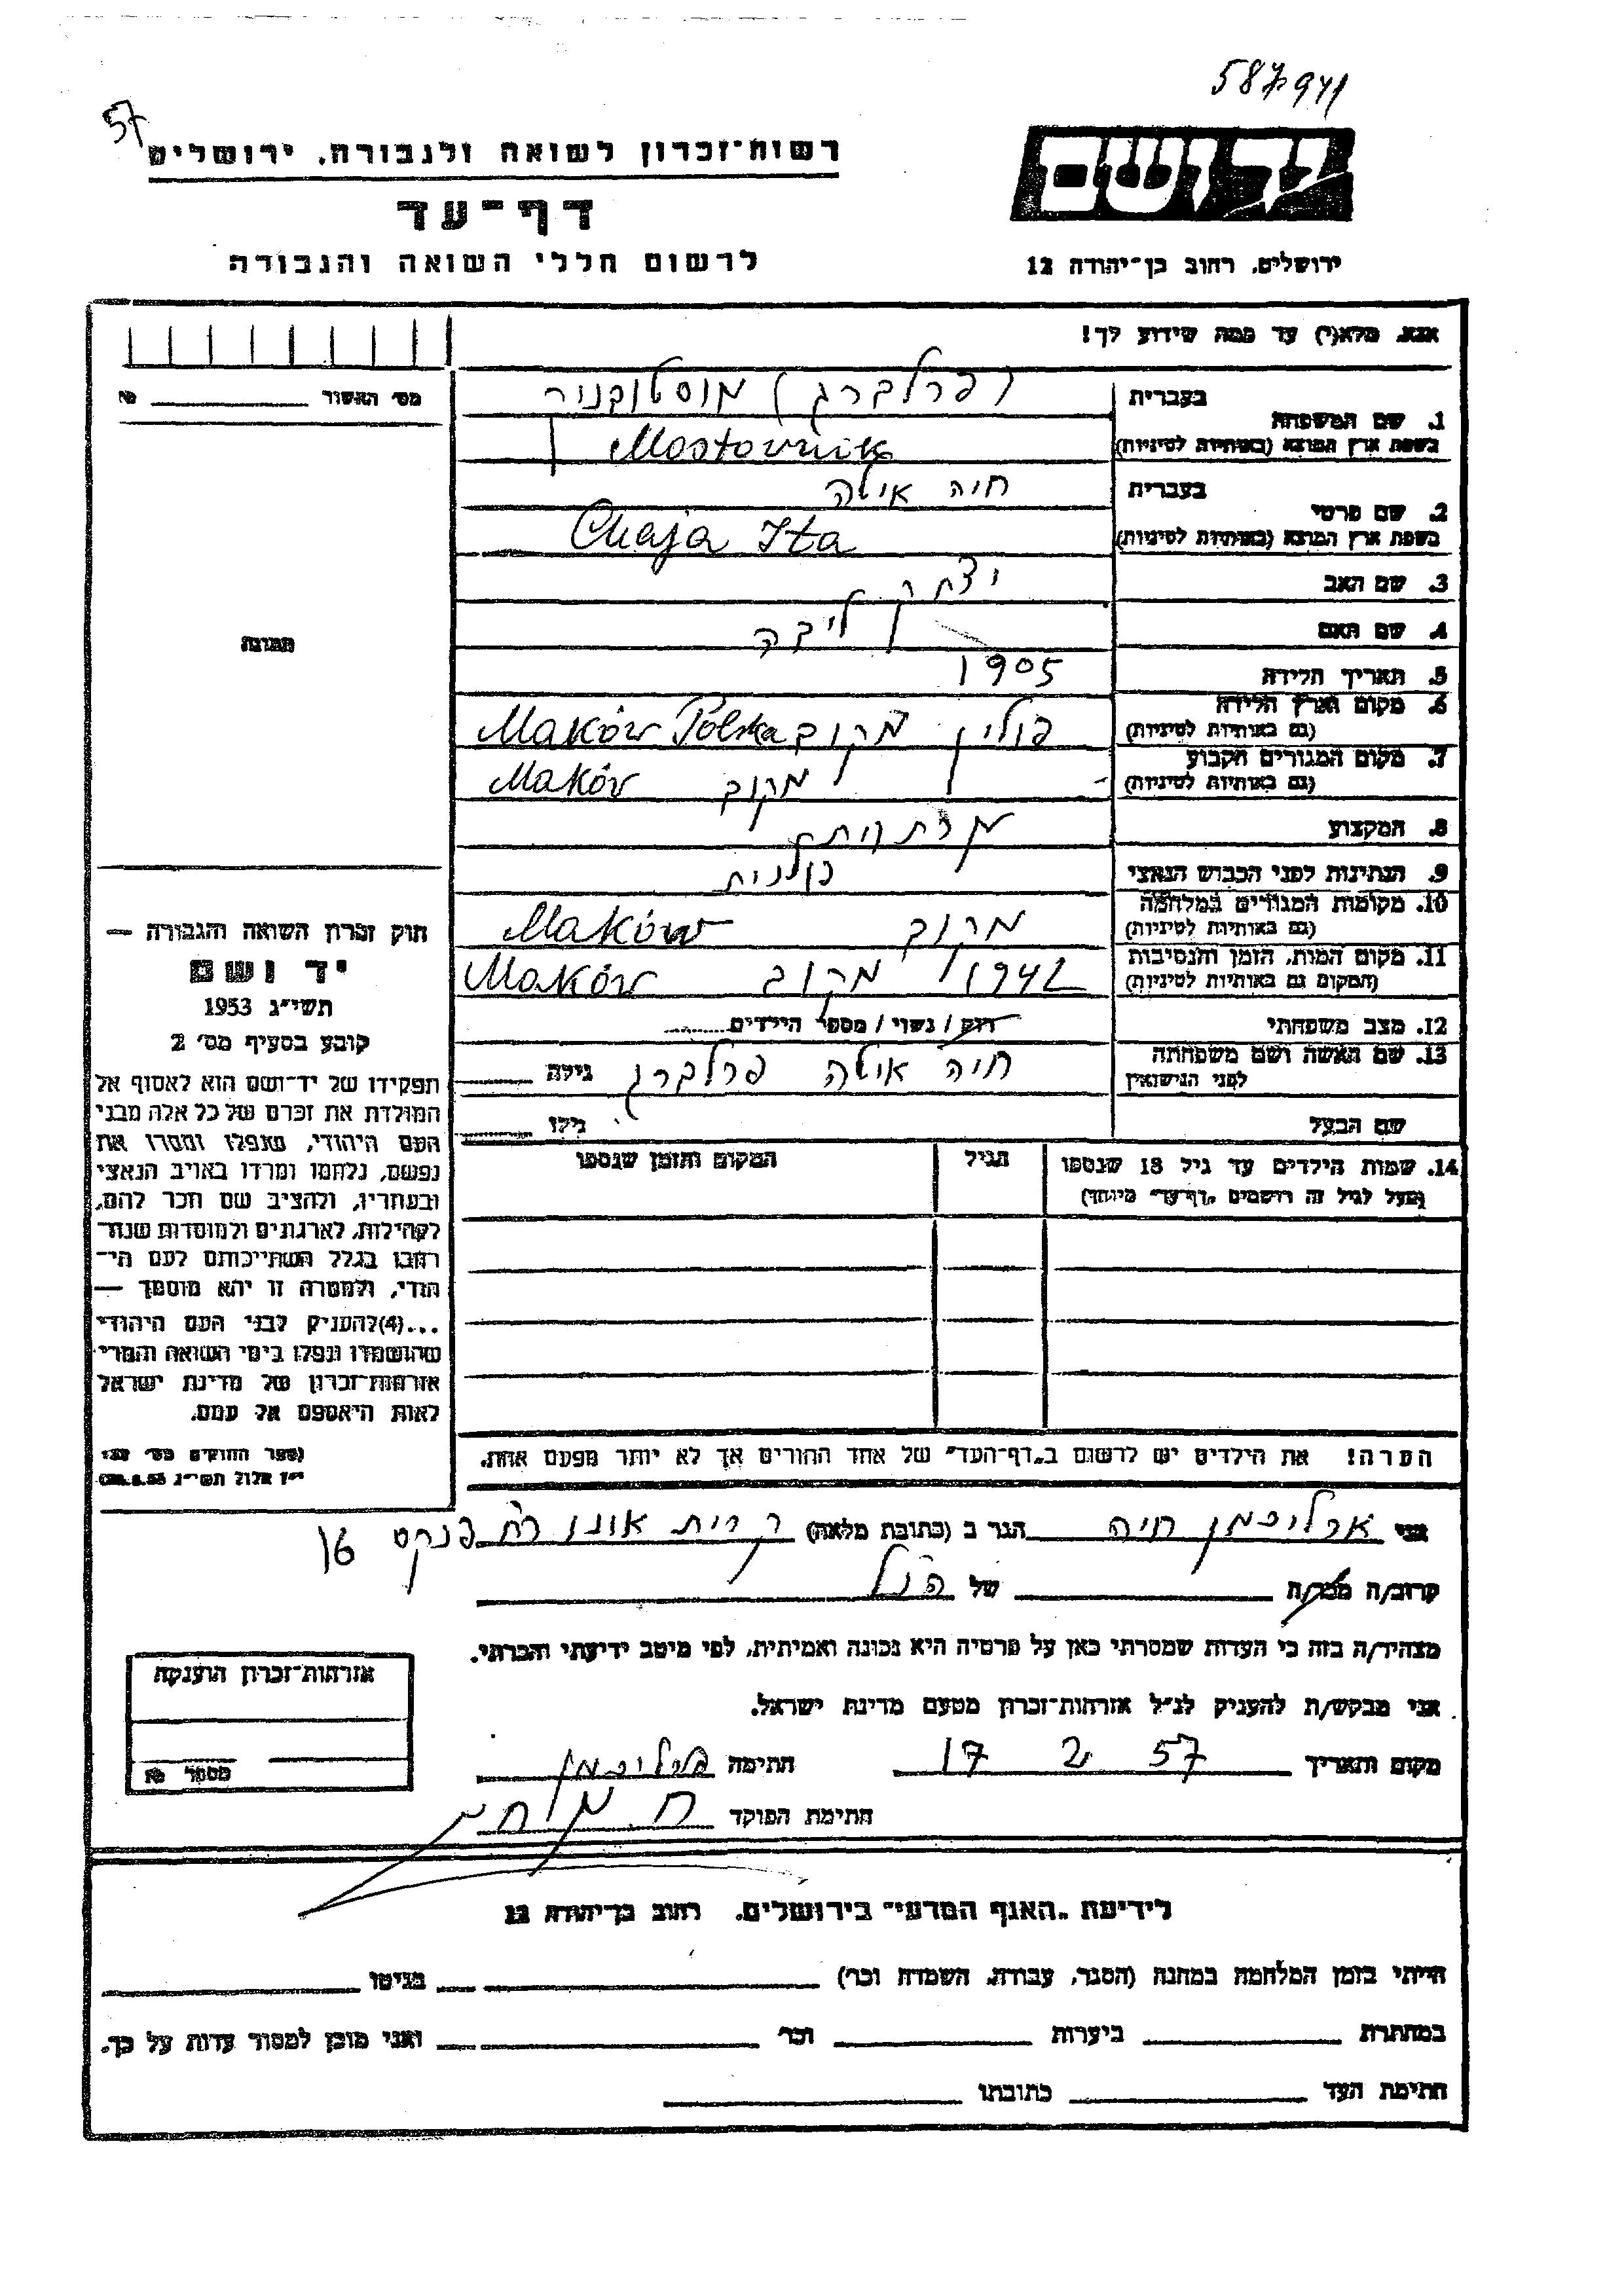 587941
57
רשות־זכרון לשואה ולגבורה, ירושלים
דף־עד
לרשום חללי השואה והגבורה
יד ושם
ירושלים, רחוב בן־יהודה 12
אנא, מלא(י) עד כמה שידוע לך!
מס׳ האשור № 
תמונה
1. שם המשפחה
בעברית (פרלברג) מוסטובניק
בשפת ארץ המוצא (באותיות לטיניות) Mostownik
2. שם פרטי
בעברית חיה איטה
בשפת ארץ המוצא (באותיות לטיניות) Chaja Ita
3. שם האב יצחק
4. שם האם ליבה
5. תאריך הלידה 1905
6. מקום וארץ הלידה
(גם באותיות לטיניות) פולין מקוב Maków Polska
7. מקום המגורים הקבוע
(גם באותיות לטיניות) מקוב Maków
8. המקצוע
9. הנתינות לפני הכבוש הנאצי פולנית
10. מקומות המגורים במלחמה
(גם באותיות לטיניות) מקוב Maków
11. מקום המות, הזמן והנסיבות
(המקום גם באותיות לטיניות) 1942 מקוב Maków
12. מצב משפחתי רווק / נשוי / מספר הילדים
13. שם האשה ושם משפחתה
לפני הנישואין חיה איטה פרלברג גילה
שם הבעל גילו
14. שמות הילדים עד גיל 18 שנספו
(מעל לגיל זה רושמים „דף־עד" מיוחד)
הגיל
המקום והזמן שנספו
הערה! את הילדים יש לרשום ב„דף־העד" של אחד ההורים אך לא יותר מפעם אחת.
חוק זכרון השואה והגבורה —
יד ושם
תשי״ג 1953
קובע בסעיף מס׳ 2
תפקידו של יד־ושם הוא לאסוף אל
המולדת את זכרם של כל אלה מבני
העם היהודי, שנפלו ומסרו את
נפשם, נלחמו ומרדו באויב הנאצי
ובעוזריו, ולהציב שם וזכר להם,
לקהילות, לארגונים ולמוסדות שנח־
רבו בגלל השתייכותם לעם הי־
הודי, ולמטרה זו יהא מוסמך —
...(4) להעניק לבני העם היהודי
שהושמדו ונפלו בימי השואה והמרי
אזרחות־זכרון של מדינת ישראל
לאות היאספם אל עמם.
(ספר החוקים מס׳ 132
י״ז אלול תשי״ג 28.8.53)
אני ארליכמן חיה הגר ב (כתובת מלאה) קרית אונו רח׳ פנקס 16
קרוב/ה מכר/ה של הנ״ל
מצהיר/ה בזה כי העדות שמסרתי כאן על פרטיה היא נכונה ואמיתית, לפי מיטב ידיעתי והכרתי.
אני מבקש/ת להעניק לנ״ל אזרחות־זכרון מטעם מדינת ישראל.
מקום ותאריך 17 2 57 חתימה ארליכמן
חתימת הפוקד
אזרחות־זכרון הוענקה
מספר №
לידיעת „האגף המדעי" בירושלים, רחוב בן־יהודה 12
הייתי בזמן המלחמה במחנה (הסגר, עבודה, השמדה וכו׳) בגיטו
במחתרת ביערות וכו׳ ואני מוכן למסור עדות על כך.
חתימת העד כתובתו